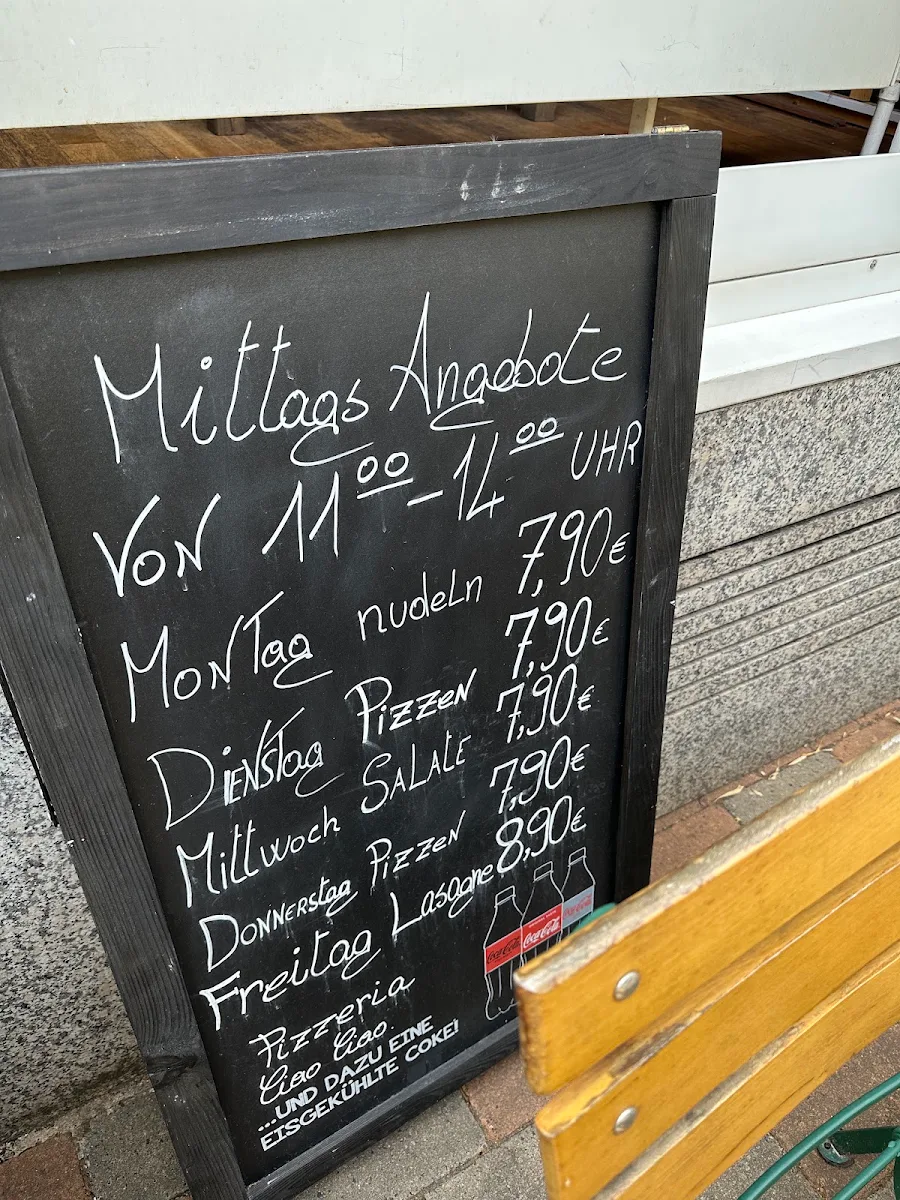 Mittags Angebote
VON 11⁰⁰-14⁰⁰ UHR
MONTag nudeln 7,90€
DIENSTag Pizzen 7,90€
Mittwoch SALATE 7,90€
DONNERSTag Pizzen 7,90€
Freitag Lasagne 8,90€
Pizzeria
Ciao Ciao
...UND DAZU EINE
EISGEKÜHLTE COKE!
Coca-Cola
Coca-Cola
Coca-Cola